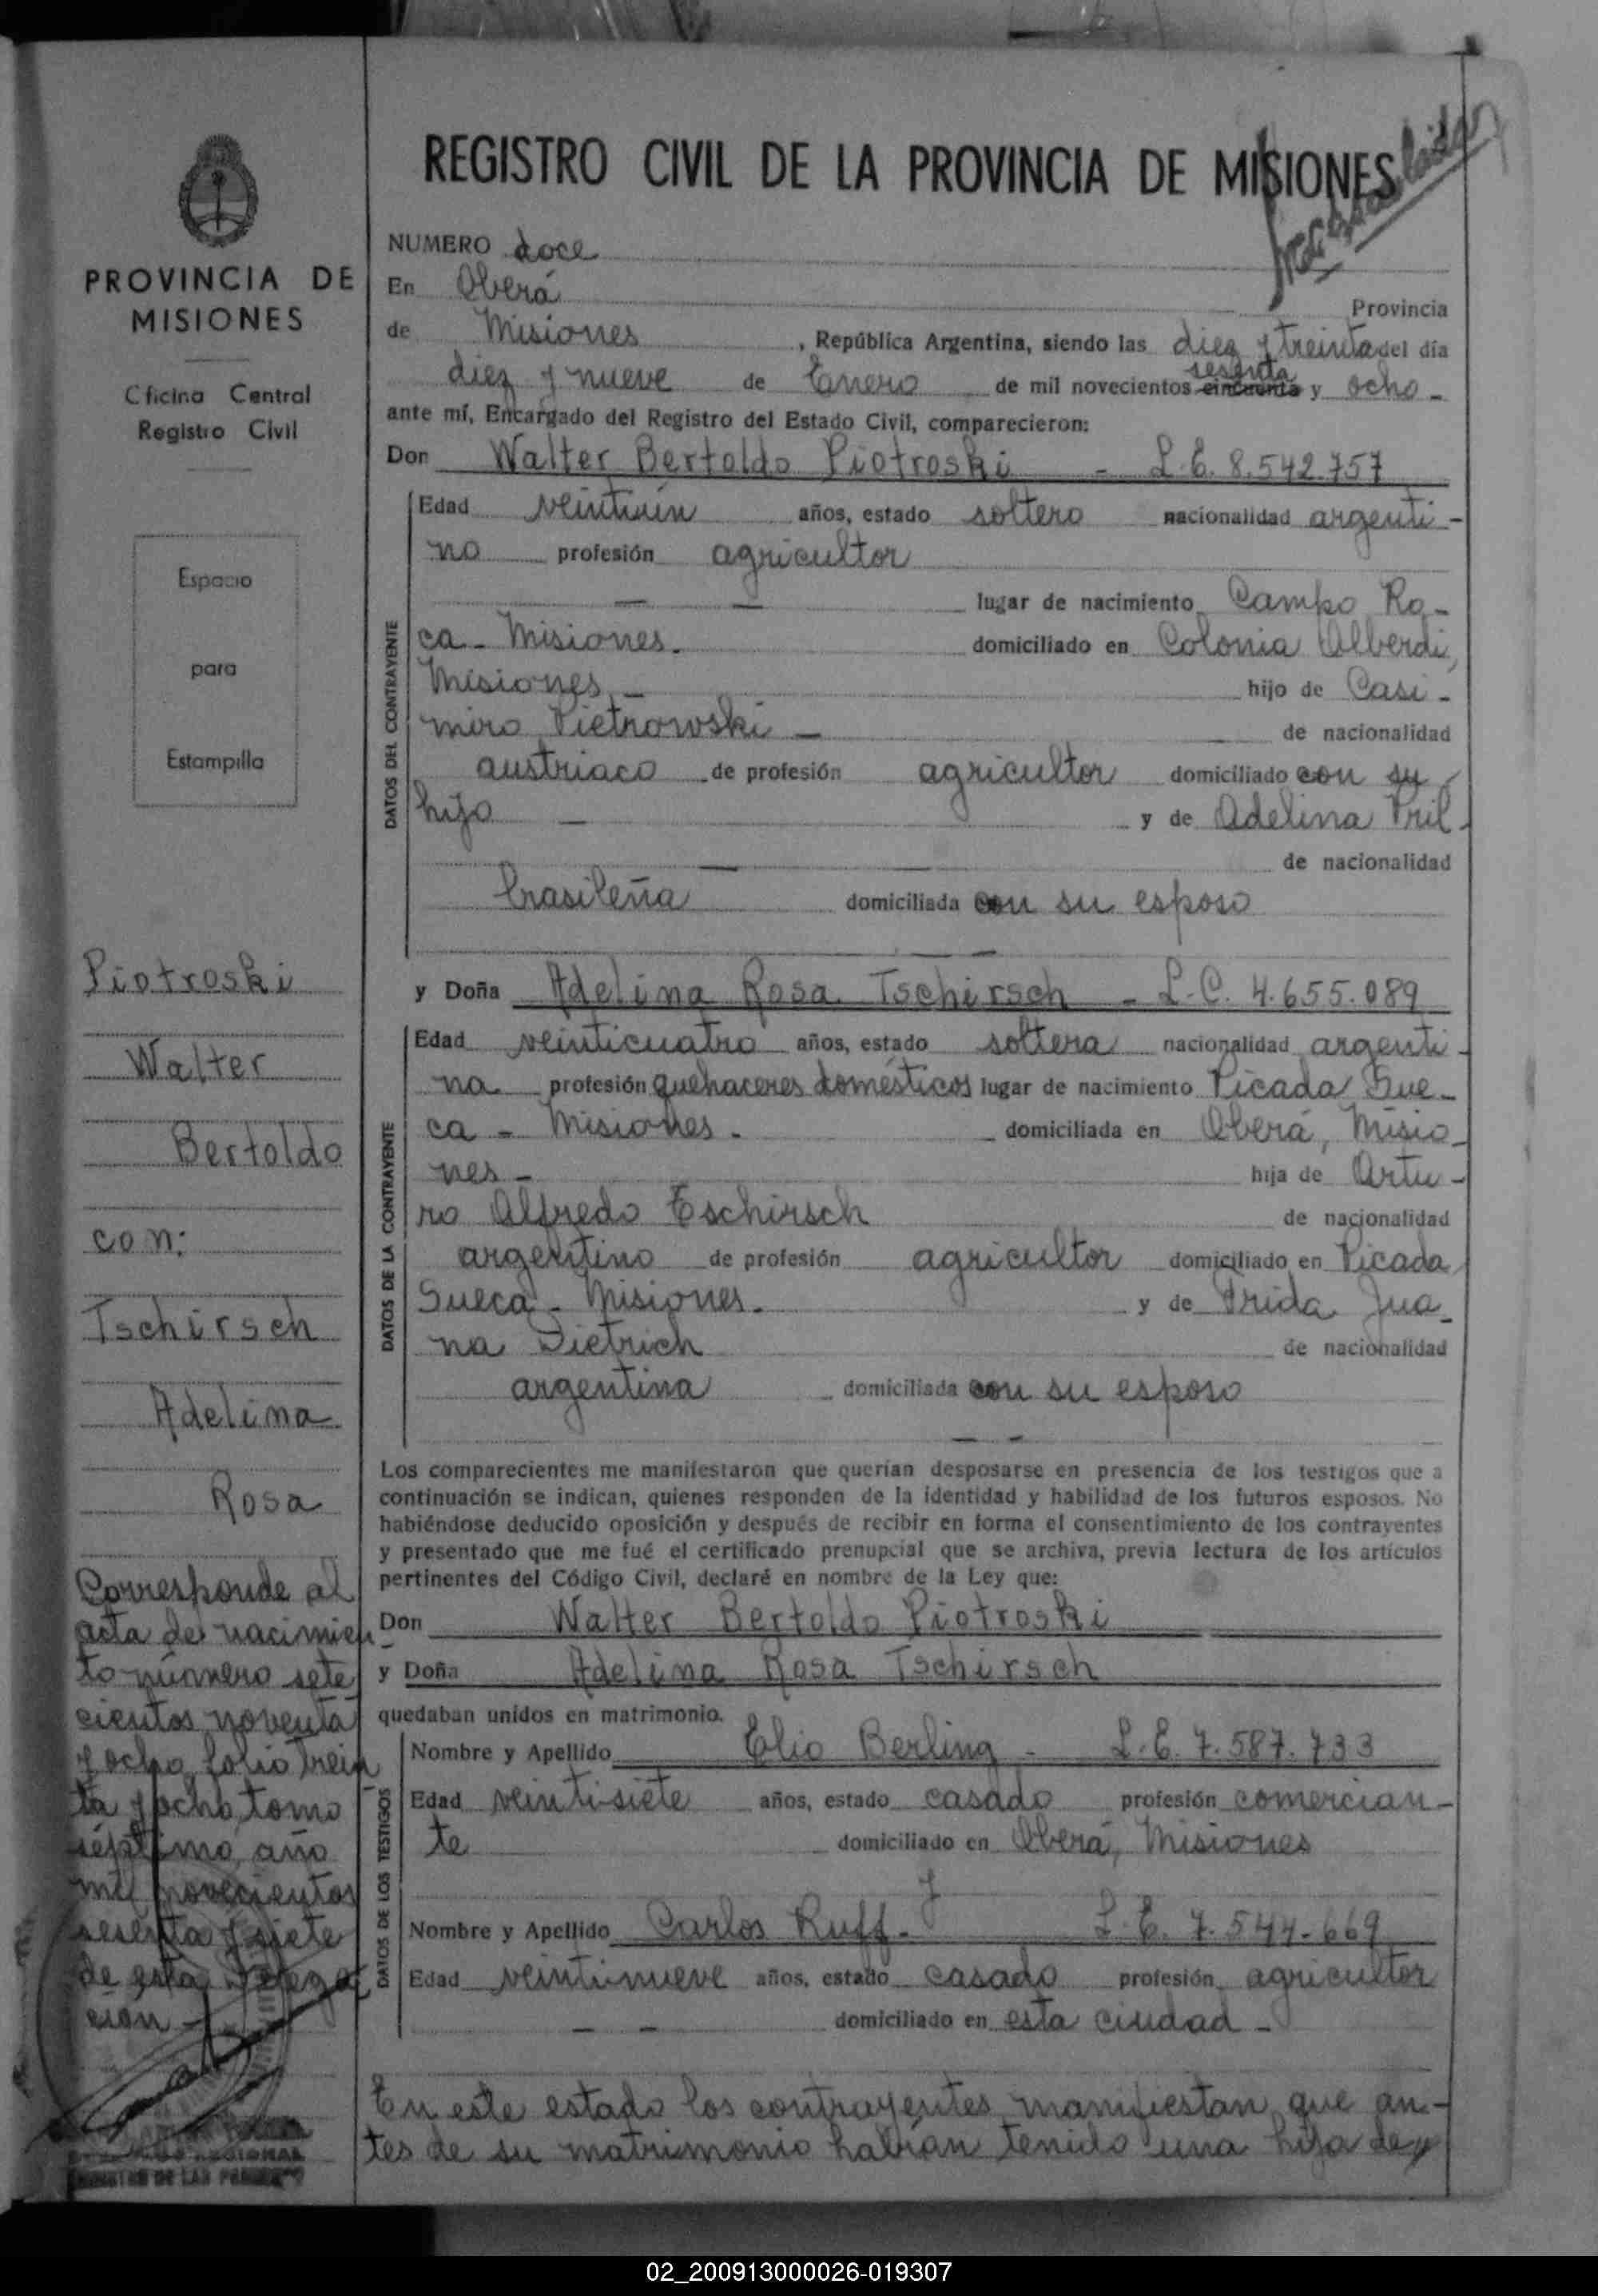 PROVINCIA DE
MISIONES
Oficina Central
Registro Civil
Espacio
para
Estampilla
Piotroski
Walter
Bertoldo
con:
Tschirsch
Adelina
Rosa
Corresponde al
acta de nacimien
to número sete
cientos noventa
y ocho folio trein
ta y ocho, tomo
séptimo, año
mil novecientos
sesenta y siete
de esta Delega
ción -
REGISTRO CIVIL DE LA PROVINCIA DE MISIONES
NUMERO doce
En Oberá
Provincia
de Misiones, República Argentina, siendo las diez y treinta del día
sesenta
diez y nueve de Enero de mil novecientos cincuenta y ocho -
ante mí, Encargado del Registro del Estado Civil, comparecieron:
Don Walter Bertoldo Piotroski - L.E. 8.542.757
DATOS DEL CONTRAYENTE
Edad veintiún años, estado soltero nacionalidad argenti-
no profesión agricultor
— — lugar de nacimiento Campo Ro-
ca - Misiones. domiciliado en Colonia Alberdi,
Misiones - hijo de Casi-
miro Pietrowski — de nacionalidad
austriaco de profesión agricultor domiciliado con su
hijo — y de Adelina Pril.
— — de nacionalidad
brasileña domiciliada con su esposo
y Doña Adelina Rosa Tschirsch - L.C. 4.655.089
DATOS DE LA CONTRAYENTE
Edad veinticuatro años, estado soltera nacionalidad argenti-
na profesión quehaceres domésticos lugar de nacimiento Picada Sue-
ca - Misiones. domiciliada en Oberá, Misio-
nes - hija de Artu-
ro Alfredo Tschirsch de nacionalidad
argentino de profesión agricultor domiciliado en Picada
Sueca - Misiones. y de Frida Jua-
na Dietrich de nacionalidad
argentina domiciliada con su esposo
— —
Los comparecientes me manifestaron que querían desposarse en presencia de los testigos que a
continuación se indican, quienes responden de la identidad y habilidad de los futuros esposos. No
habiéndose deducido oposición y después de recibir en forma el consentimiento de los contrayentes
y presentado que me fué el certificado prenupcial que se archiva, previa lectura de los artículos
pertinentes del Código Civil, declaré en nombre de la Ley que:
Don Walter Bertoldo Piotroski
y Doña Adelina Rosa Tschirsch
quedaban unidos en matrimonio.
DATOS DE LOS TESTIGOS
Nombre y Apellido Elio Berling - L.E. 7.587.733
Edad veintisiete años, estado casado profesión comercian-
te domiciliado en Oberá, Misiones
Nombre y Apellido Carlos Ruff - L.E. 7.544.669
Edad veintinueve años, estado casado profesión agricultor
— — domiciliado en esta ciudad -
En este estado los contrayentes manifiestan que an-
tes de su matrimonio habían tenido una hija de
02_200913000026-019307